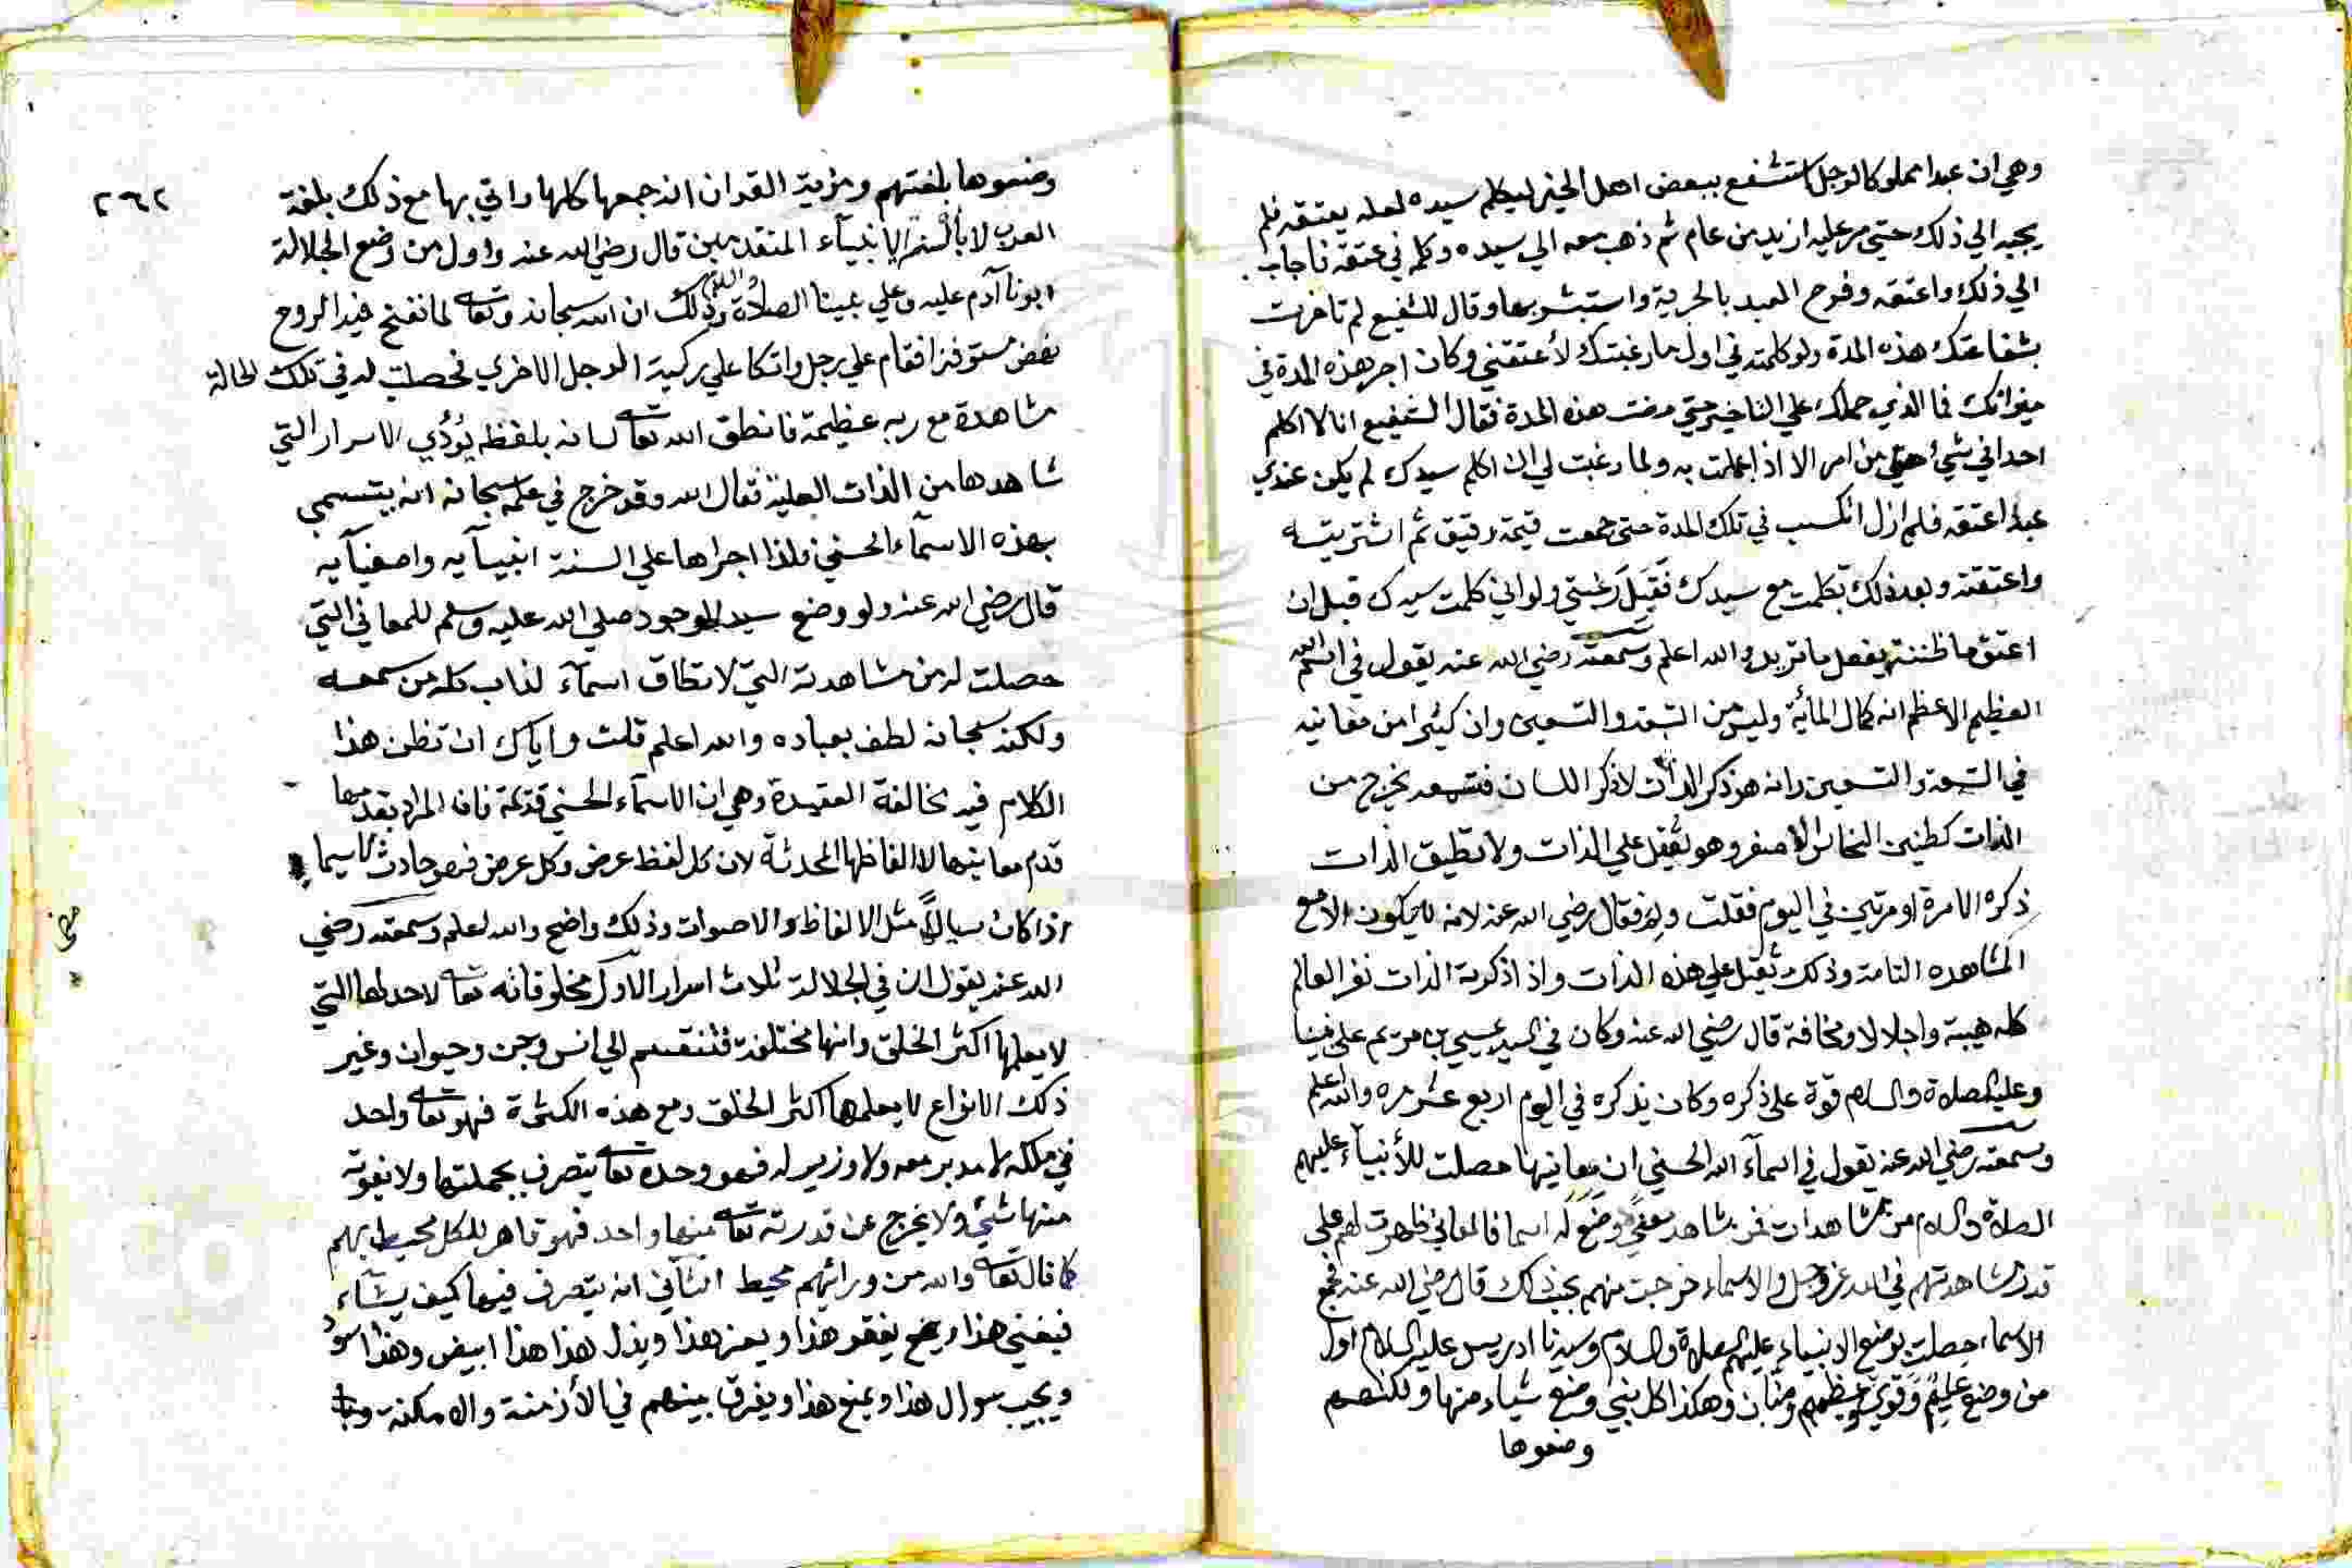 وهي ان عبدا مملوكا لرجل استشفع ببعض اهل الخير ليكلم سيده لعله يعتقه فلم
يجبه الي ذلك حتي مر عليه ازيد من عام ثم ذهب معه الي سيده وكلمه في عتقه فاجاب
الي ذلك واعتقه وفرح العبد بالحرية واستبشر بها وقال للشفيع لم تاخرت
بشفاعتك هذه المدة ولو كلمته في اول ما رغبتك لأعتقني وكان اجر هذه المدة في
ميزانك فما الذي حملك علي التاخير حتي مرت هذه المدة فقال الشفيع انا لا اكلم
احدا في شيء من امر الا اذا عملت به ولما رغبت لي ان اكلم سيدك لم يكن عندي
عبد اعتقه فلم ازل اتكسب في تلك المدة حتى جمعت قيمة رقيق ثم اشتريته
واعتقته وبعد ذلك تكلمت مع سيدك فَقَبِلَ رَغبتي ولو اني كلمت سيدك قبل ان
اعتق ما ظننته يفعل ما تريد والله اعلم وسمعته رضي الله عنه يقول في اسم الله
العظيم الاعظم انه كمال المائة وليس من التسعة والتسعين وان كثيرا من معانيه
في التسعة والتسعين وانه هو ذكر الذات لا ذكر اللسان فتسمعه يخرج من
الذات كطنين النحاس الاصفر وهو يثقل علي الذات ولا تطيق الذات
ذكره الا مرة او مرتين في اليوم فقلت ولم فقال رضي الله عنه لانه لا يكون الا مع
المشاهده التامة وذلك ثقيل علي هذه الذات واذا ذكرته الذات العالم
كله هيبة واجلالا ومخافة قال رضي الله عنه وكان في السيد عيسي بن مريم على نبينا
وعليه الصلاة والسلام قوة على ذكره وكان يذكره في اليوم اربع عشر مره والله اعلم
وسمعته رضي الله عنه يقول في اسمآء الله الحسني ان معانيها حصلت للأنبيآء عليهم
الصلاة والسلام من مشاهدات فمن شاهد معنًي وَضَعَ لَه اسما فالمعاني ظهرت لهم على
قدر مشاهدتهم في الله عز وجل والاسماء خرجت منهم بحسب ذلك قال رضي الله عنه فجميع
الاسماء حصلت بوضع الانبياء عليهم الصلاة والسلام وسيدنا ادريس عليه السلام اول
من وضع عليمٌ وقويٌ وعظيمٌ ومنّان وهكذا كل نبي وضع شياء منها ولكنهم
وضعوها
٢٦٢
وضعوها بلغتهم ومزية القران انه جمعها كلها واتي بها مع ذلك بلغة
العرب لا بألسنة الانبيآء المتقدمين قال رضي الله عنه واول من وضع الجلالة
ابونا آدم عليه وعلي نبينا الصلاة والسلام وذلك ان الله سبحانه وتعالى لما نفخ فيه الروح
نهض مستوفزا فقام علي رجل واتكا علي ركبة الرجل الاخري فحصلت له في تلك الحالة
مشاهدة مع ربه عظيمة فانطق الله تعالى لسانه بلفظ يُؤدي الاسرار التي
شاهدها من الذات العلية فقال الله وقد خرج في علمه سبحانه انه يتسمى
بهذه الاسمآء الحسني فلذا اجراها علي السنة انبيآيه واصفيآيه
قال رضي الله عنه ولو وضع سيد الوجود صلي الله عليه وسلم للمعاني التي
حصلت له من مشاهدته التي لا تطاق اسمآء لذاب كل من سمعه
ولكنه سبحانه لطف بعباده والله اعلم قلت واياك ان تظن هذا
الكلام فيه مخالفة العقيدة وهي ان الاسمآء الحسني قديمة فان المراد بقدمها
قدم معانيها لا الفاظها المحدثة لان كل لفظ عرض وكل عرض فهو حادث لاسيما
اذا كان سيالاً مثل الالفاظ والاصوات وذلك واضح والله اعلم وسمعته رضي
الله عنه يقول ان في الجلالة ثلاث اسرار الاول مخلوقاته تعالى لا حد لها التي
لا يعلمها اكثر الخلق وانها مختلفة فتنقسم الي انس وجن وحيوان وغير
ذلك الانواع لا يعلمها اكثر الخلق ومع هذه الكثرة فهو تعالى واحد
في ملكه لا مدبر معه ولا وزير له فهو وحده تعالى يتصرف بجملتها ولا يفوته
منها شيٌ ولا يخرج عن قدرته تعالى منها واحد فهو قاهر للكل محيط بهم
كما قال تعالى والله من ورائهم محيط الثاني انه يتصرف فيها كيف يشآء
فيغني هذا ويفقر هذا ويعز هذا ويذل هذا هذا ابيض وهذا اسود
ويجيب سوال هذا ويمنع هذا ويفرق بينهم في الأزمنة والامكنة